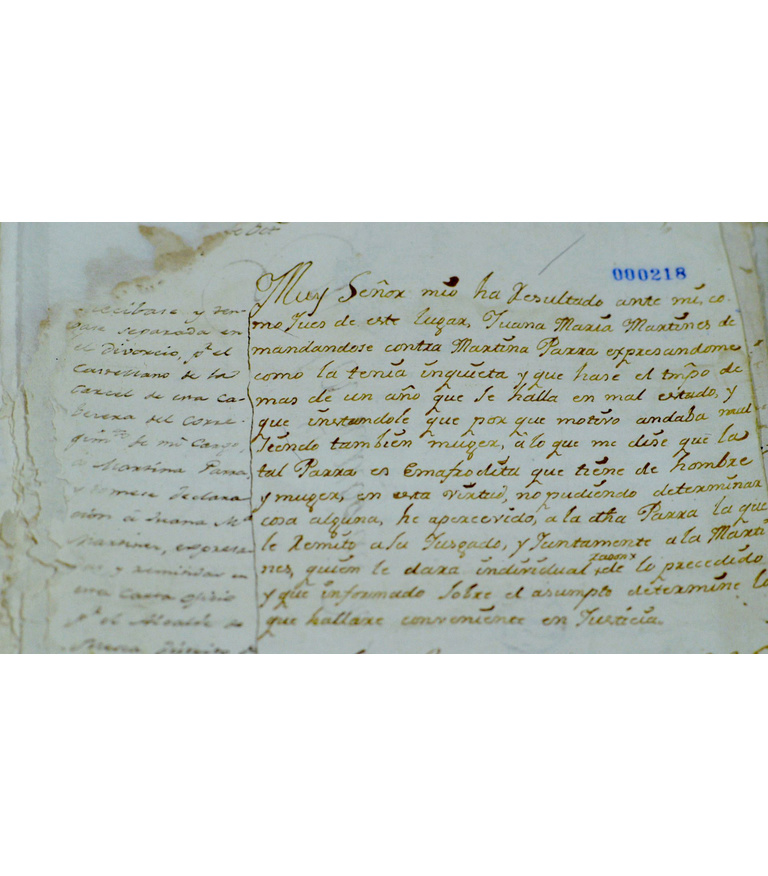 de Oct
000218
Muy Señor mio ha Resultado ante mi, co-
mo Jues de este lugar, Juana Maria Martines de
mandandose contra Martina Parra expresandome
como la tenia inquieta y que hase el tmpo de
mas de un año que se halla en mal estado, y
que instandole que por que motivo andaba mal
siendo tambien muger, â lo que me dise que la
tal Parra es Emafrodita que tiene de hombre
y muger, en esta virtud, no pudiendo determinar
cosa alguna, he apercevido, a la dha Parra la que
le Remito a su Jusgado, y Juntamente a la Marti
nes, quien le dara individual razon de lo precedido
y que informado sobre el asumpto determine lo
que hallare conveniente en Justicia.
Recibase y
separada en
el divorcio, pa. el
Castellano de la
Carcel de esta Ca-
besera del Corre-
gimto. de mi Cargo
a Martina Parra
y tomese declara
cion â Juana Ma.
Martines,
y remitir en
una Carta oficio
pa. el Alcalde de